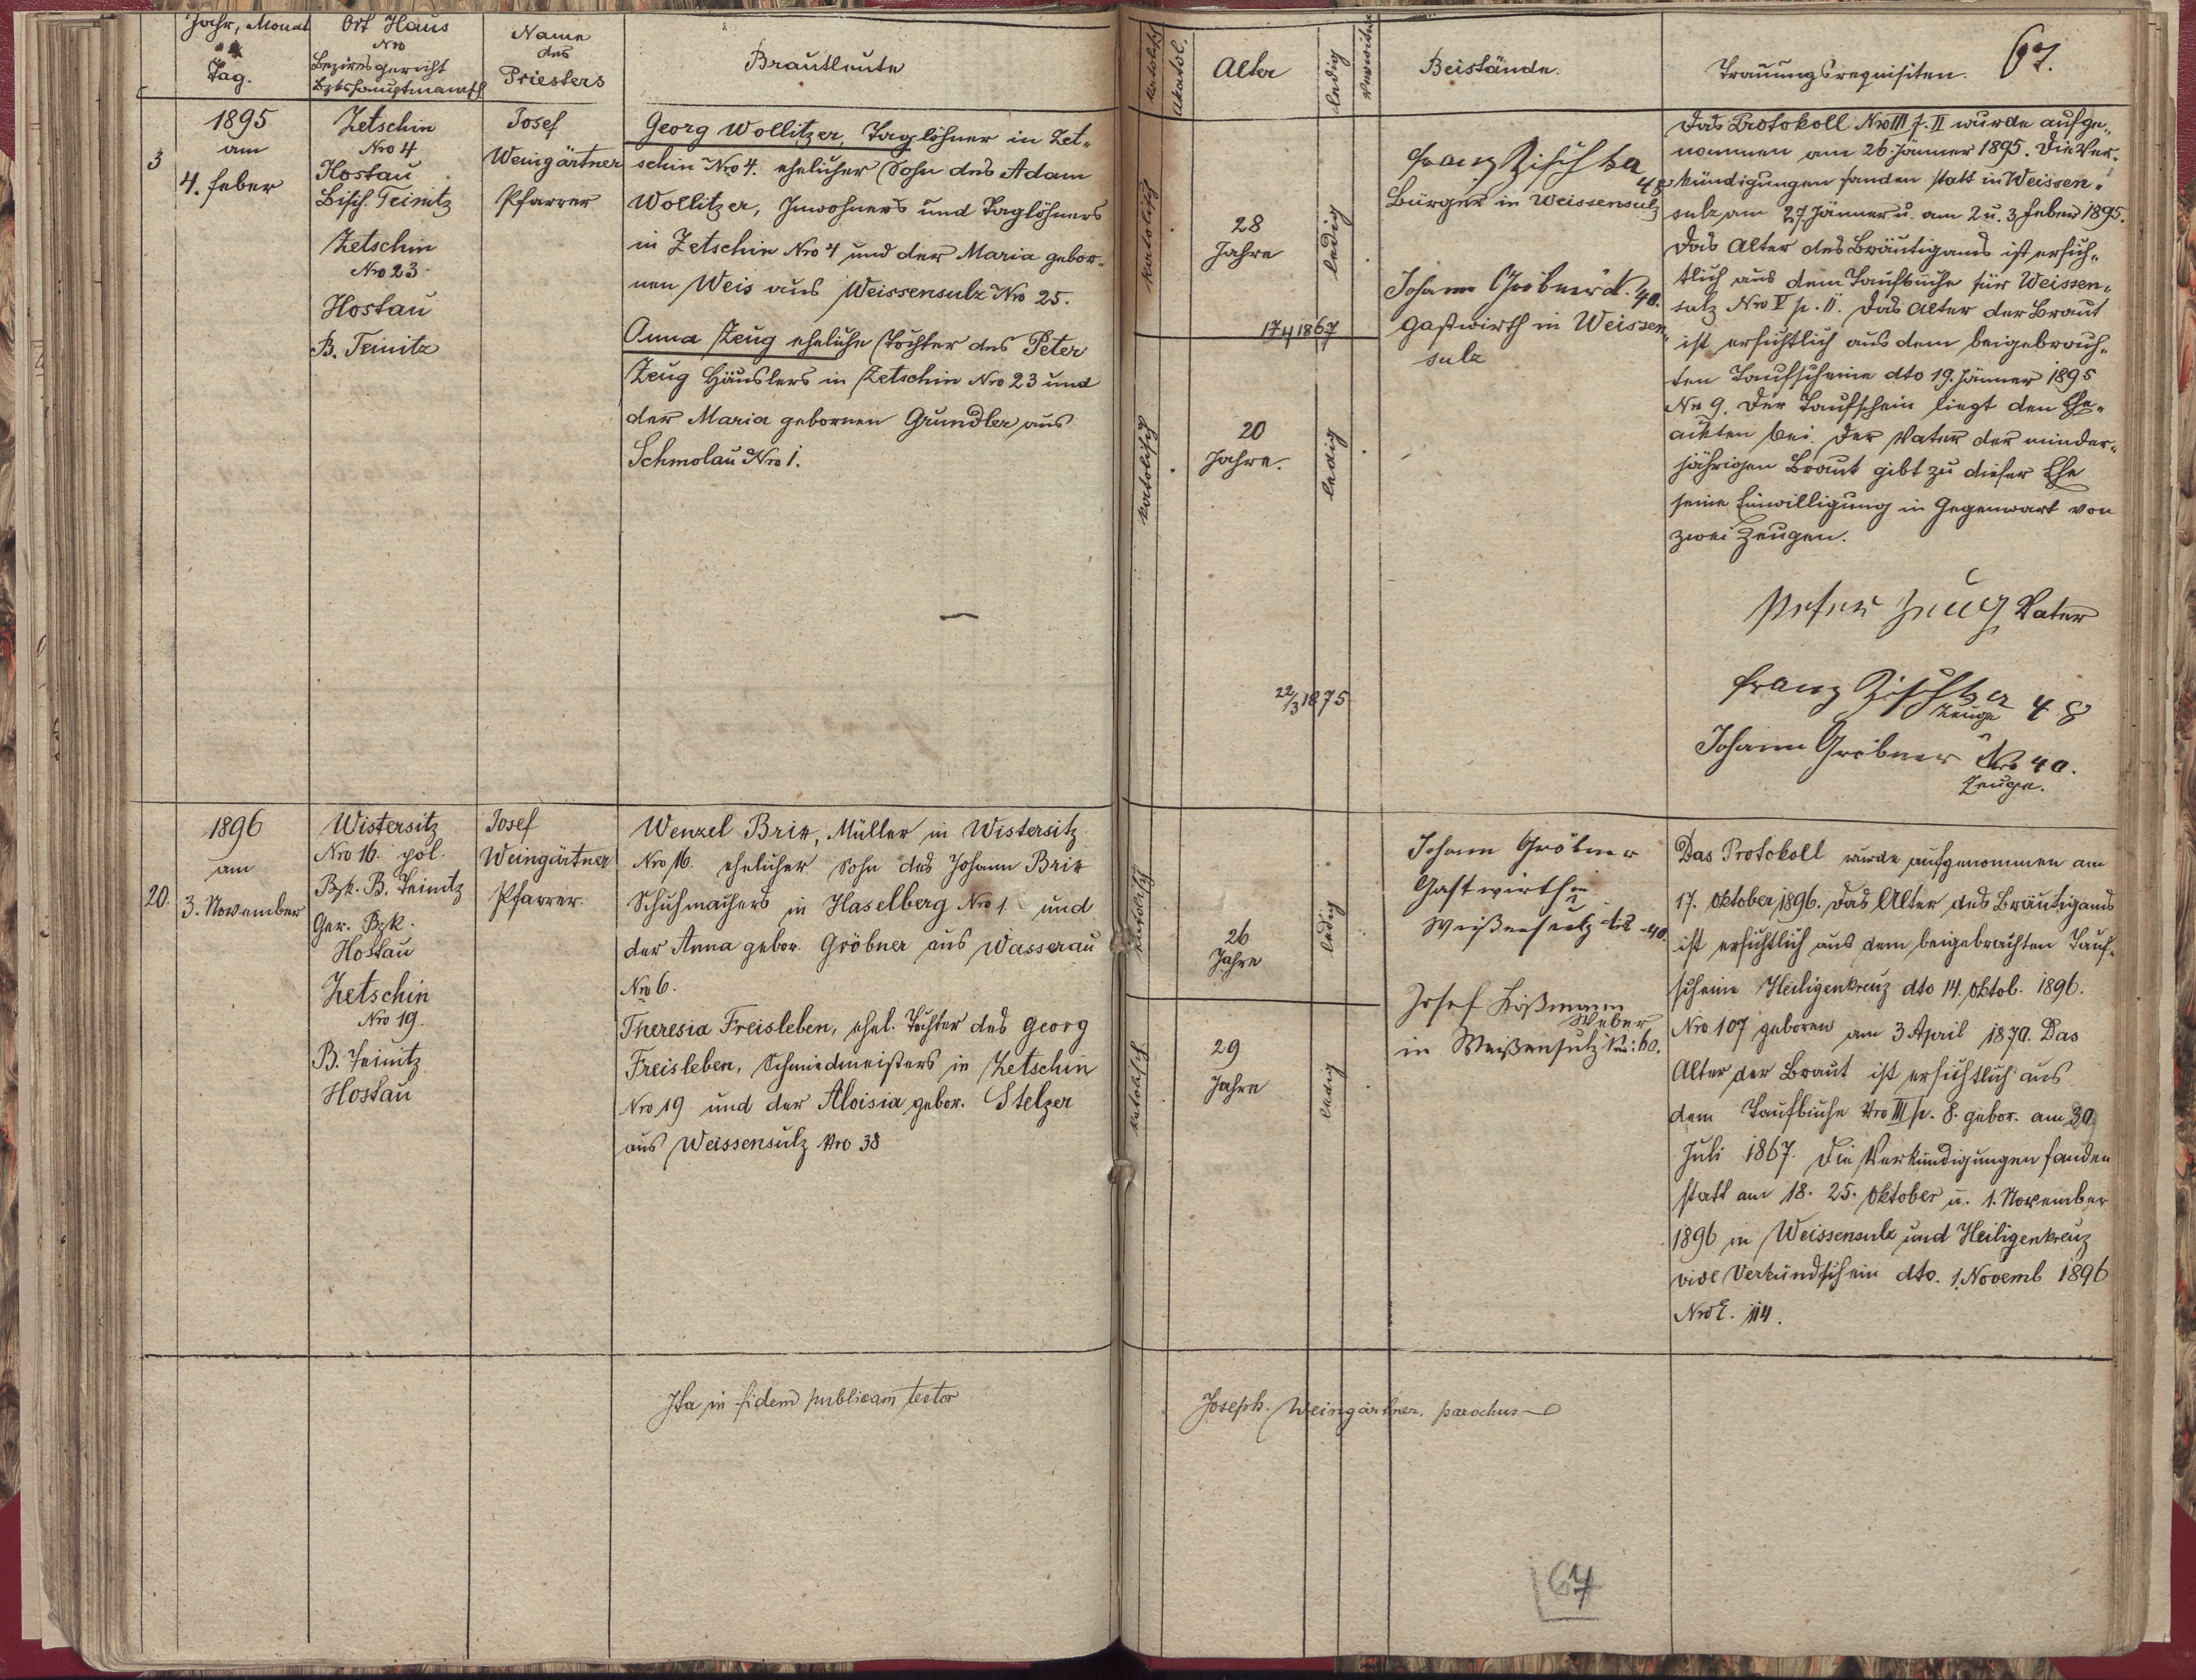 Jahr, Monat
Tag.
Ort Haus
Nro
Bezirksgericht
Bzkshauptmansch
Name
des
Priesters
Brautleute
katolisch
Akatol.
Alter
ledig
Verwitwet
Beistände.
Trauungsrequisiten.
67.
3
1895
am
4. Feber
Zetschin
Nro 4
Hostau
Bisch. Teinitz
Zetschin
Nro 23
Hostau
B. Teinitz
Josef
Weingärtner
Pfarrer
Georg Wollitzer, Taglöhner in Zet-
schin Nro 4. ehelicher Sohn des Adam
Wollitzer, Inwohners und Taglöhners
in Zetschin Nro 4 und der Maria gebor-
nen Weis aus Weissensulz Nro 25.
Anna Zeug eheliche Tochter des Peter
Zeug Häuslers in Zetschin Nro 23 und
der Maria gebornen Grundler aus
Schmolau Nro 1.
katolisch
28
Jahre
ledig
17 4 1867
katolisch
20
Jahre.
ledig
22/3 1875
Franz Zischka
48
Bürger in Weissensulz
Johann Gröbner 40.
Gastwirth in Weissen-
sulz
Das Protokoll Nro III f. II wurde aufge-
nommen am 26. Jänner 1895. Die Ver-
kündigungen fanden statt in Weissen-
sulz am 27. Jänner u. am 2 u. 3 Feber 1895.
Das Alter des Bräutigams ist ersich-
tlich aus dem Taufbuche für Weissen-
sulz Nro V p. 11. Das Alter der Braut
ist ersichtlich aus dem beigebrach-
ten Taufscheine dto 19. Jänner 1895
Nro 9. Der Taufschein liegt den Ehe-
akten bei. Der Vater der minder-
jährigen Braut gibt zu dieser Ehe
seine Einwilligung in Gegenwart von
zwei Zeugen.
Peter Zeug Vater
Franz Zischka 48
Zeuge
Johann Gröbner Nro 40.
Zeuge.
20.
1896
am
3. November
Wistersitz
Nro 16. pol.
Bzk. B. Teinitz
Ger. Bzk.
Hostau
Zetschin
Nro 19.
B. Teinitz
Hostau
Josef
Weingärtner
Pfarrer.
Wenzel Brix, Müller in Wistersitz
Nro 16. ehelicher Sohn des Johann Brix
Schuhmachers in Haselberg Nro 1 und
der Anna gebor. Gröbner aus Wasserau
Nro 6.
Theresia Freisleben, ehel. Tochter des Georg
Freisleben, Schmiedmeisters in Zetschin
Nro 19 und der Aloisia gebor. Stelzer
aus Weissensulz Nro 38
katolisch
26
Jahre
ledig
katolisch
29
Jahre
ledig
Johann Gröbner
Gastwirth in
Weißensulz 40.
Josef
Weber
in Weißensulz No: 60.
Das Protokoll wurde aufgenommen am
17. Oktober 1896. Das Alter des Bräutigams
ist ersichtlich aus dem beigebrachten Tauf-
scheine Heiligenkreuz dto 14. Oktob. 1896.
Nro 107 geboren am 3 April 1870. Das
Alter der Braut ist ersichtlich aus
dem Taufbuche Nro III p. 8. gebor. am 30
Juli 1867. Die Verkündigungen fanden
statt am 18. 25. Oktober u. 1. November
1896 in Weissensulz und Heiligenkreuz
vide Verkündschein dto. 1. Novemb 1896
NroE. 114.
Ita in fidem publicam testor
Joseph. Weingärtner, parochus
67